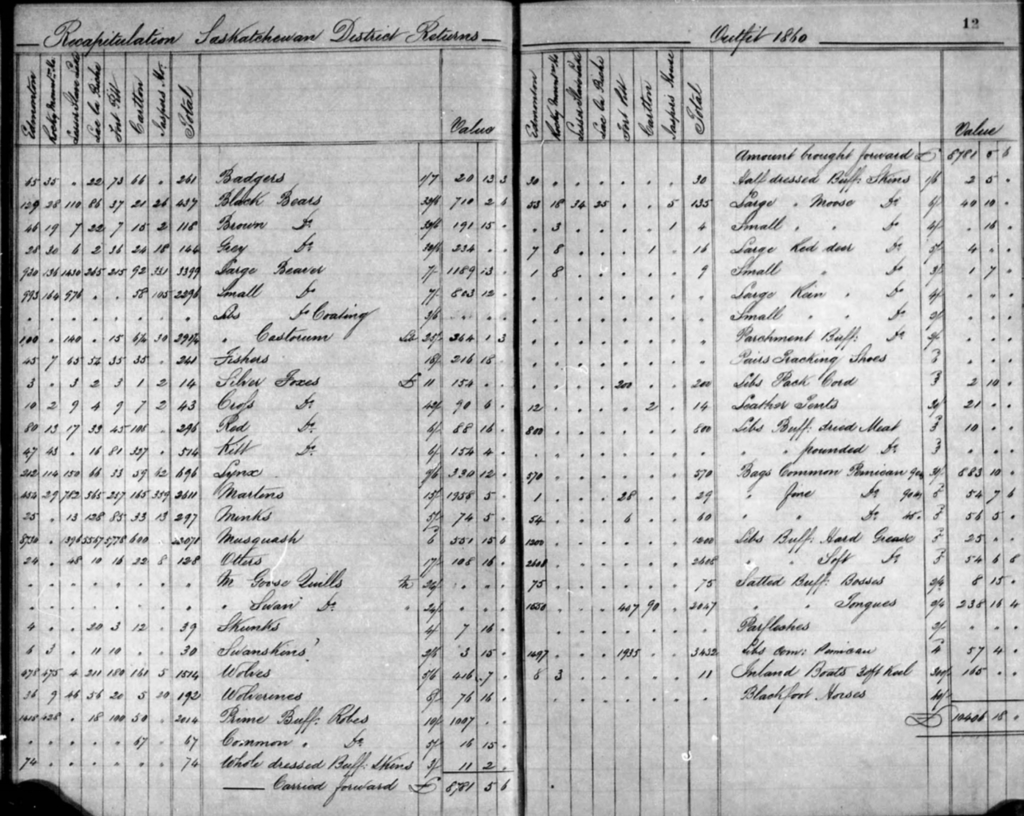 Recapitulation Saskatchewan District Returns
Edmonton Rocky Mount. Ho. Lesser Slave Lake Lac la Biche Fort Pitt Carlton Jaspers Ho. Total Value
65 35 . 22 73 66 . 261 Badgers 1/7 20 13 3
129 28 110 86 37 21 26 437 Black Bears 710 2 6
46 19 7 22 7 15 2 118 Brown Do 191 15 .
28 30 6 2 36 24 18 144 Grey Do 234 . .
136 1430 265 215 92 331 3399 Large Beaver 7/ 1189 13 .
993 164 976 . . 58 105 2296 Small Do 7/ 803 12 .
. . . . . . . . Lbs Do Coating
100 . 140 . 15 30 Castorum Lb 264 1 3
45 7 65 54 35 35 . 241 Fishers 216 18 .
3 . 3 2 3 1 2 14 Silver Foxes £ 11 154 . .
10 2 9 4 9 7 2 43 Cross Do 42/ 90 6 .
80 13 17 33 45 108 . 296 Red Do 6/ 88 16 .
47 43 . 16 81 327 . 514 Kitt Do 6/ 154 4 .
212 114 150 66 33 59 62 696 Lynx 9/6 330 12 .
454 29 782 565 257 165 359 2611 Martens 15/ 1958 5 .
25 . 13 128 85 33 13 297 Minks 5/ 74 5 .
600 Musquash 6 551 15 6
24 . 48 10 16 22 8 128 Otters 17/ 108 16 .
. . . . . . . . M Goose Quills M 24/
. . . . . . . . " Swan Do " 24/
4 . . 20 3 12 . 39 Skunks 4/ 7 16 .
6 3 . 11 10 . . 30 Swanskins 2/6 3 15 .
678 475 4 211 180 161 5 1514 Wolves 5/6 416 7 .
36 9 46 56 20 5 20 192 Wolverines 8/ 76 16 .
1418 428 . 18 100 50 . 2014 Prime Buff: Robes 10/ 1007 . .
. . . . . 67 . 67 Common " Do 5/ 16 15 .
74 . . . . . . 74 Whole dressed Buff: Skins 3/ 11 2 .
Carried forward £ 8781 5 6
Outfit 1860 12
Edmonton Rocky Mount. Ho. Lesser Slave Lake Lac la Biche Fort Pitt Carlton Jaspers House Total Value
Amount brought forward £ 8781 5 6
30 . . . . . . 30 Half dressed Buff: Skins 1/6 2 5 .
53 18 34 25 . . 5 135 Large " Moose Do 6/ 40 10 .
. 3 . . . . 1 4 Small " " Do 4/ . 16 .
7 8 . . . 1 . 16 Large Red deer Do 5/ 4 . .
1 8 . . . . . 9 Small " Do 3/ 1 7 .
. . . . . . . . Large Rein " Do 4/
. . . . . . . . Small " " Do 2/
. . . . . . . . Parchment Buff: Do
. . . . . . . . Pairs Tracking Shoes
. . . . 200 . . 200 Lbs Pack Cord 3 2 10 .
12 . . . . 2 . 14 Leather Tents 30/ 21 . .
800 . . . . . . 800 Lbs Buff: dried Meat 3 10 . .
. . . . . . . . " " pounded Do 3
570 . . . . . . 570 Bags Common Pemican 90lb 883 10 .
1 . . . 28 . . 29 " Fine Do 54 7 6
54 . . . 6 . . 60 " " Do 56 5 .
1200 . . . . . . 1200 Lbs Buff: Hard Grease 25 . .
2608 . . . . . . 2608 " " Soft Do 54 6 8
75 . . . . . . 75 Salted Buff: Bosses 8 15 .
. . . 90 . " " Tongues 238 16 4
. . . . . . . . Parfleshes 2/
1497 . . . 1935 . . 3432 Lbs Com: Pemican 4 57 4 .
8 3 . . . . . 11 Inland Boats 30ft Keel 165 . .
Blackfoot Horses
£ 10406 18 .